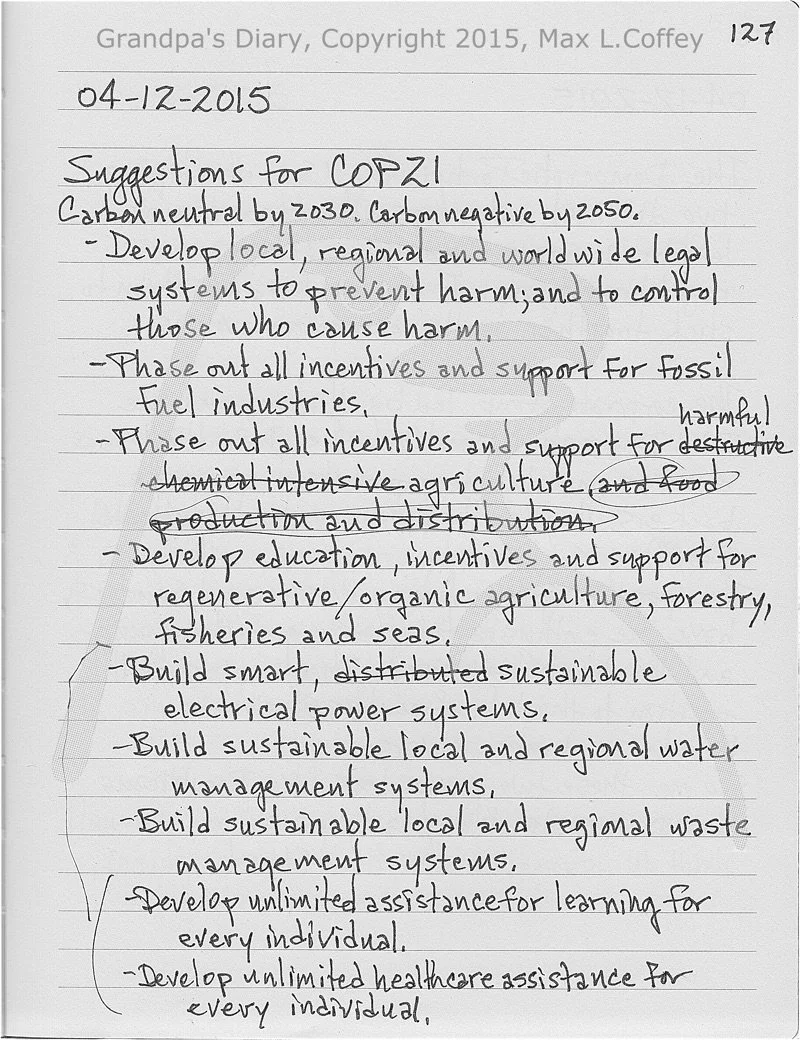 Grandpa's Diary, Copyright 2015, Max L.Coffey
127
04-12-2015
Suggestions for COP21
Carbon neutral by 2030. Carbon negative by 2050.
- Develop local, regional and worldwide legal
systems to prevent harm; and to control
those who cause harm.
- Phase out all incentives and support for fossil
fuel industries.
harmful
- Phase out all incentives and support for destructive
chemical intensive agriculture, and food
production and distribution.
- Develop education, incentives and support for
regenerative/organic agriculture, forestry,
fisheries and seas.
- Build smart, distributed sustainable
electrical power systems.
- Build sustainable local and regional water
management systems.
- Build sustainable local and regional waste
management systems.
- Develop unlimited assistance for learning for
every individual.
- Develop unlimited healthcare assistance for
every individual.